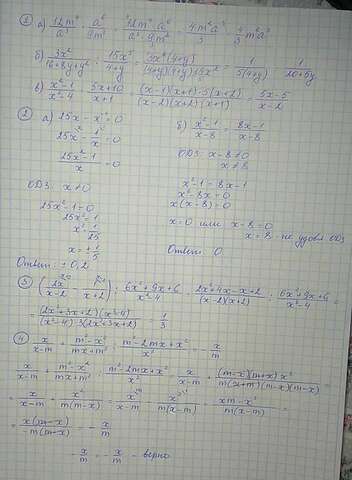 ① а) 12m⁴/a³ · a⁶/9m² = 12m⁴·a⁶/a³·9m² = 4m²a³/3 = 4/3 m²a³
б) 3x²/(16+8y+y²) : 15x²/(4+y) = 3x²(4+y)/((4+y)(4+y)15x²) = 1/(5(4+y)) = 1/(20+5y)
в) (x²-1)/(x²-4) · (5x+10)/(x+1) = (x-1)(x+1)·5(x+2)/((x-2)(x+2)(x+1)) = (5x-5)/(x-2)
② а) 25x - 1/x = 0
25x²/x - 1/x = 0
(25x²-1)/x = 0
ОДЗ: x ≠ 0
25x²-1=0
25x²=1
x²=1/25
x=±1/5
Ответ: ±0,2
б) (x²-1)/(x-8) = (8x-1)/(x-8)
ОДЗ: x-8≠0
x≠8
x²-1=8x-1
x²-8x=0
x(x-8)=0
x=0 или x-8=0
x=8 - не удовл ОДЗ
Ответ: 0
③ (2x/(x-2) - 1/(x+2)) : (6x²+9x+6)/(x²-4) = (2x²+4x-x+2)/((x-2)(x+2)) : (6x²+9x+6)/(x²-4) =
= (2x²+3x+2)(x²-4)/((x²-4)·3(2x²+3x+2)) = 1/3
④ x/(x-m) + (m²-x²)/(mx+m²) : (m²-2mx+x²)/x² = -x/m
x/(x-m) + (m²-x²)/(mx+m²) : (m²-2mx+x²)/x² = x/(x-m) + (m-x)(m+x)x²/(m(x+m)(m-x)(m-x)) =
= x/(x-m) + x²/(m(m-x)) = x/(x-m) - x²/(m(x-m)) = (xm-x²)/(m(x-m)) =
= x(m-x)/(-m(m-x)) = -x/m
-x/m = -x/m - верно